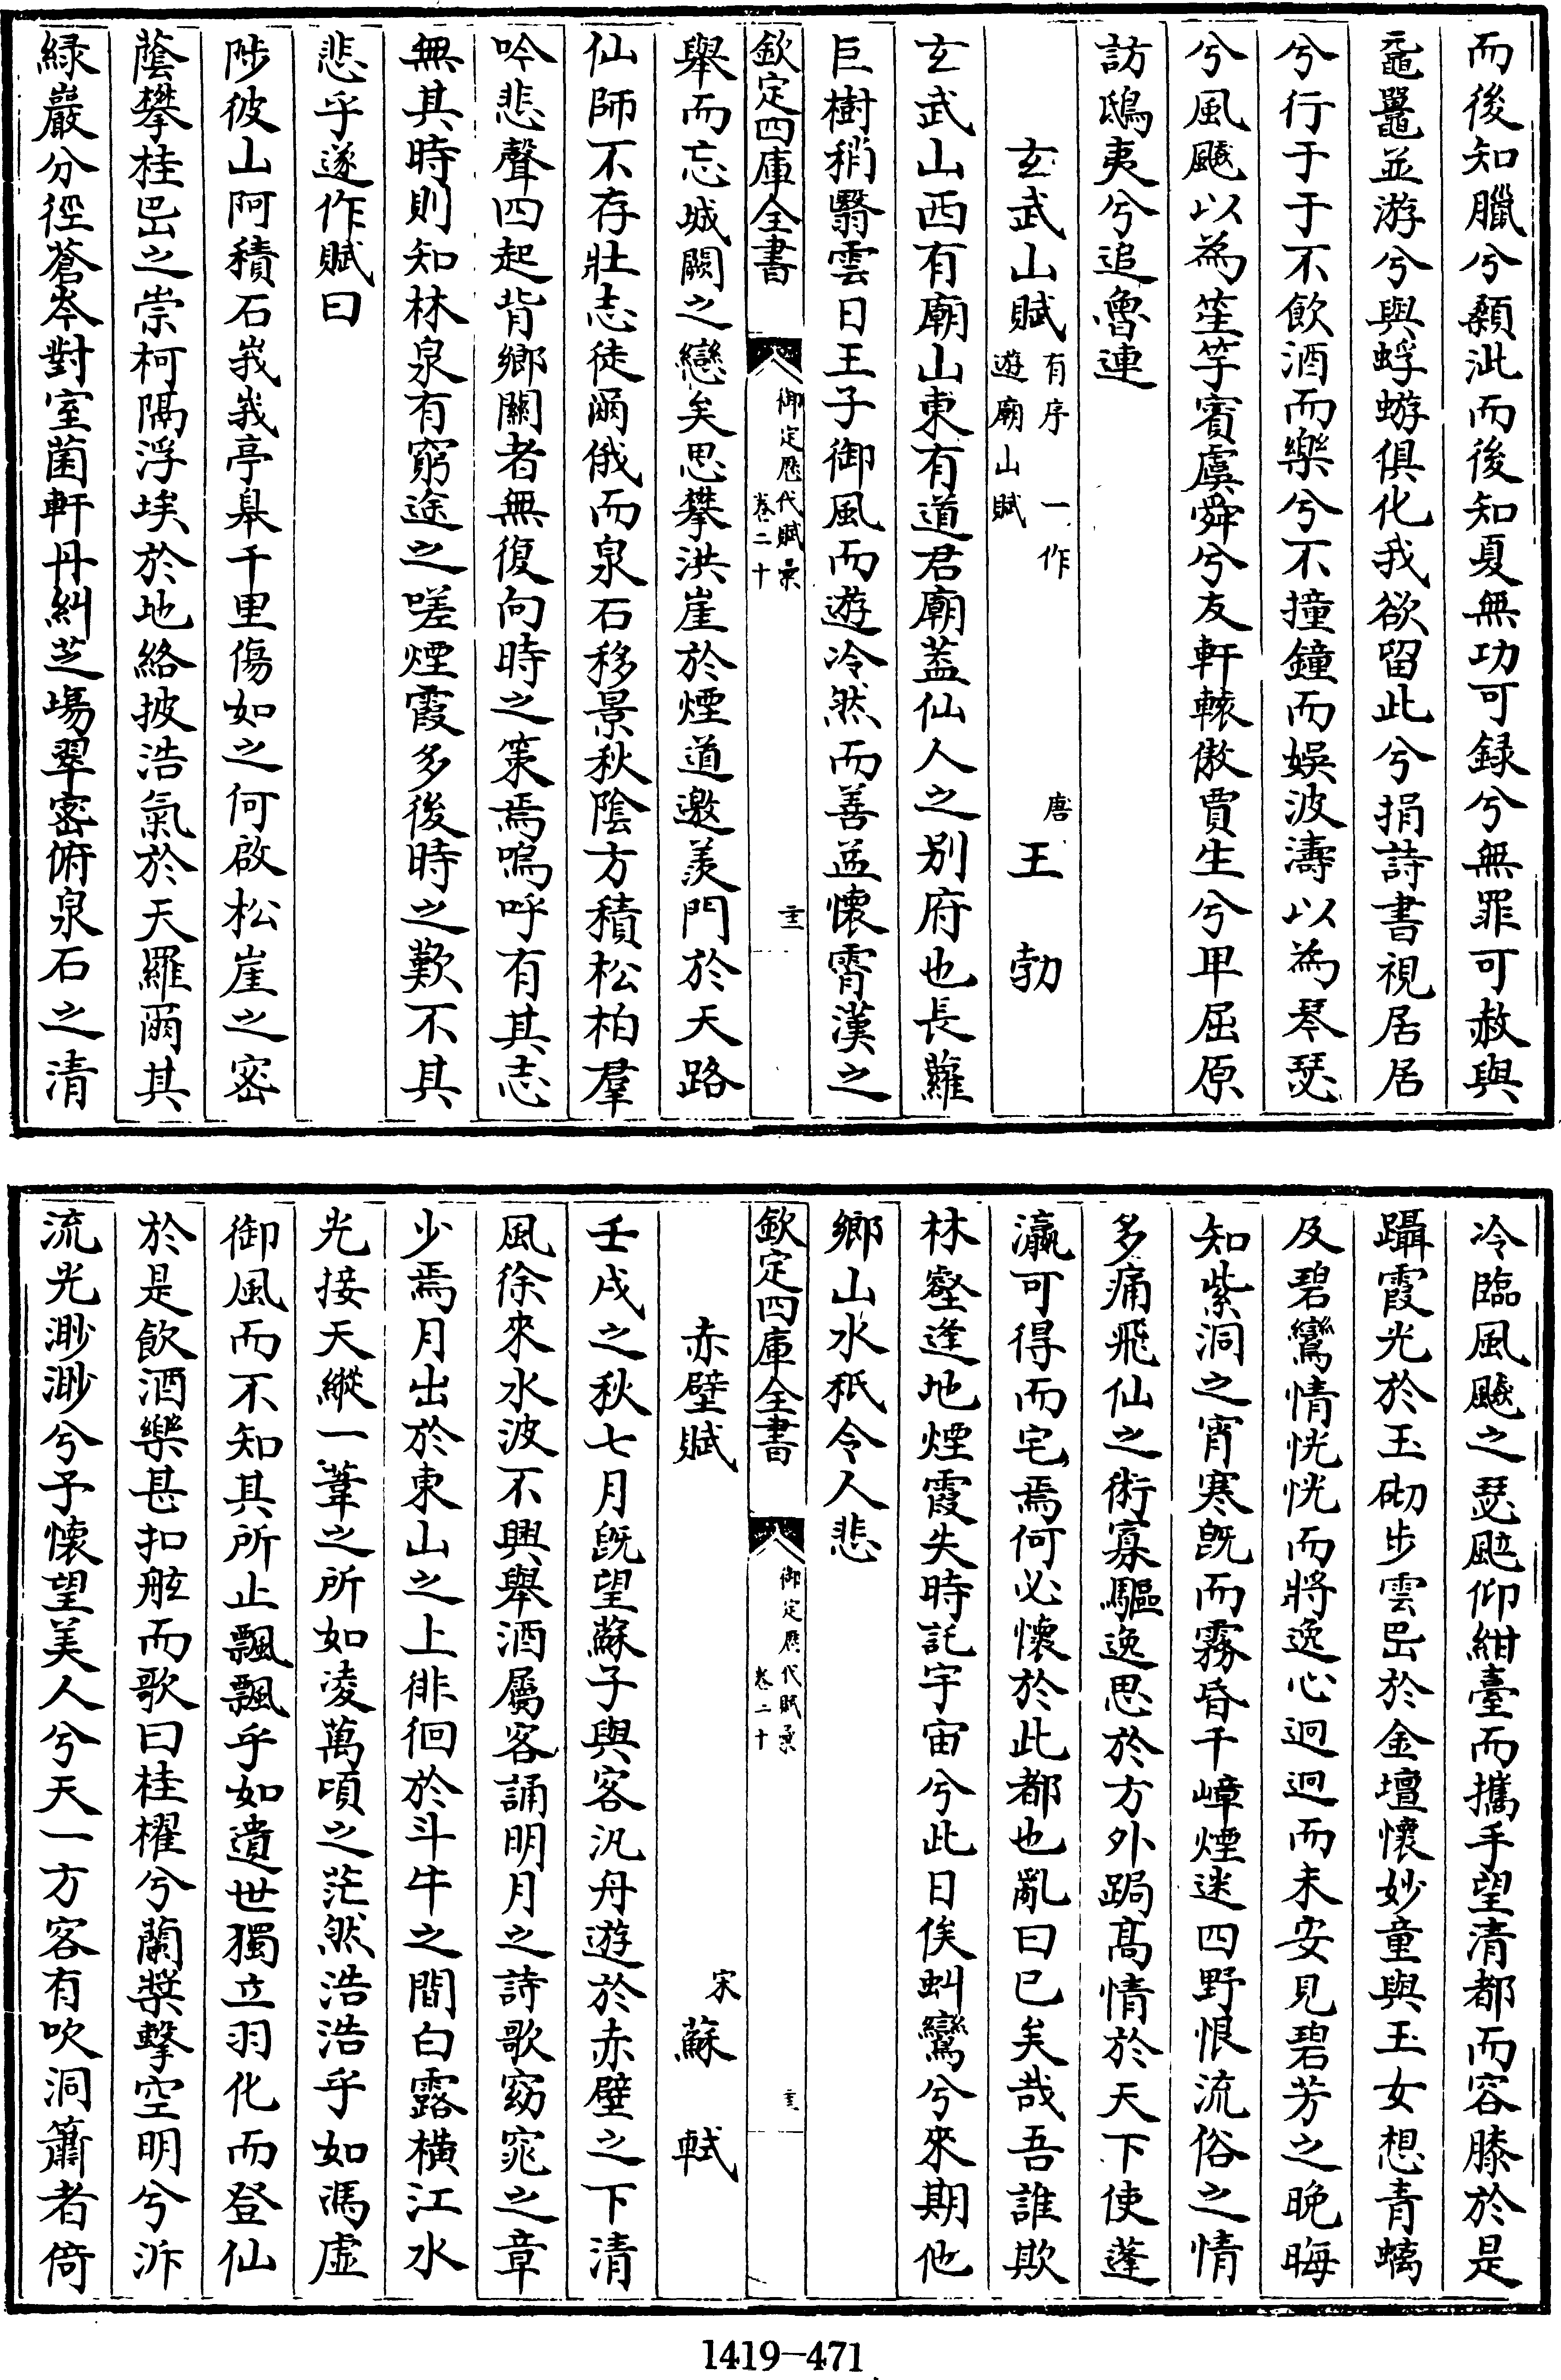 而後知臘兮顙泚而後知夏無功可録兮無罪可赦與
黿鼉並游兮與蜉蝣俱化我欲留此兮捐詩書視居居
兮行于于不飲酒而樂兮不撞鐘而娛波濤以為琴瑟
兮風颷以為笙竽賓虞舜兮友軒轅傲賈生兮甲屈原
訪鴟夷兮追魯連
玄武山賦 有序 一作遊廟山賦 唐 王勃
玄武山西有廟山東有道君廟葢仙人之别府也長蘿
巨樹稍翳雲日王子御風而遊冷然而善益懷霄漢之
欽定四庫全書 御定歴代賦彚 卷二十
舉而忘城闕之戀矣思攀洪崖於煙道邀羨門於天路
仙師不存壯志徒爾俄而泉石移景秋陰方積松柏羣
吟悲聲四起背鄉關者無復向時之策焉嗚呼有其志
無其時則知林泉有窮途之嗟煙霞多後時之歎不其
悲乎遂作賦曰
陟彼山阿積石峩峩亭皋千里傷如之何啟松崖之密
蔭攀桂岊之崇柯隔浮埃於地絡披浩氣於天羅爾其
緑巖分徑蒼岑對室菌軒丹糾芝場翠密俯泉石之清
冷臨風颷之瑟䬃仰紺臺而攜手望清都而容膝於是
躡霞光於玉砌步雲岊於金壇懷妙童與玉女想青螭
及碧鸞情恍恍而將逸心迥迥而未安見碧芳之晚晦
知紫洞之宵寒旣而霧昏千嶂煙迷四野恨流俗之情
多痛飛仙之術寡驅逸思於方外跼髙情於天下使蓬
瀛可得而宅焉何必懷於此都也亂曰已矣哉吾誰欺
林壑逢地煙霞失時託宇宙兮此日俟虯鸞兮來期他
鄉山水秖令人悲
欽定四庫全書 御定歴代賦彚 卷二十
赤壁賦 宋 蘇軾
壬戌之秋七月旣望蘇子與客汎舟遊於赤壁之下清
風徐來水波不興舉酒屬客誦明月之詩歌窈窕之章
少焉月出於東山之上徘徊於斗牛之間白露橫江水
光接天縱一葦之所如凌萬頃之茫然浩浩乎如馮虛
御風而不知其所止飄飄乎如遺世獨立羽化而登仙
於是飲酒樂甚扣舷而歌曰桂櫂兮蘭槳擊空明兮泝
流光渺渺兮予懷望美人兮天一方客有吹洞簫者倚
1419-471